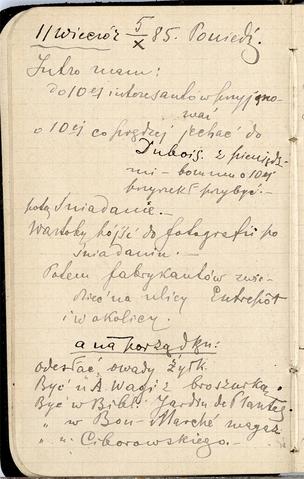 11 wieczór 5/X 85. Poniedz.
Jutro mam:
do 10ej interesantów przyjmo-
wać
o 10ej co prędzej jechać do
Dubois. z pieniędz-
mi – bo mu o 10ej
przyrzekł przybyć. –
potem śniadanie. –
Wartoby pójść do fotografii po
śniadaniu. –
Potem fabrykantów zwie-
dzić na ulicy Entrepôt
i w okolicy.
a na porządku:
odesłać owady Żytk.
Być u A. Wagi z broszurką.
Być w Bibl. Jardin des Plantes
" w Bon-Marché magaz
" u Ciborowskiego. –